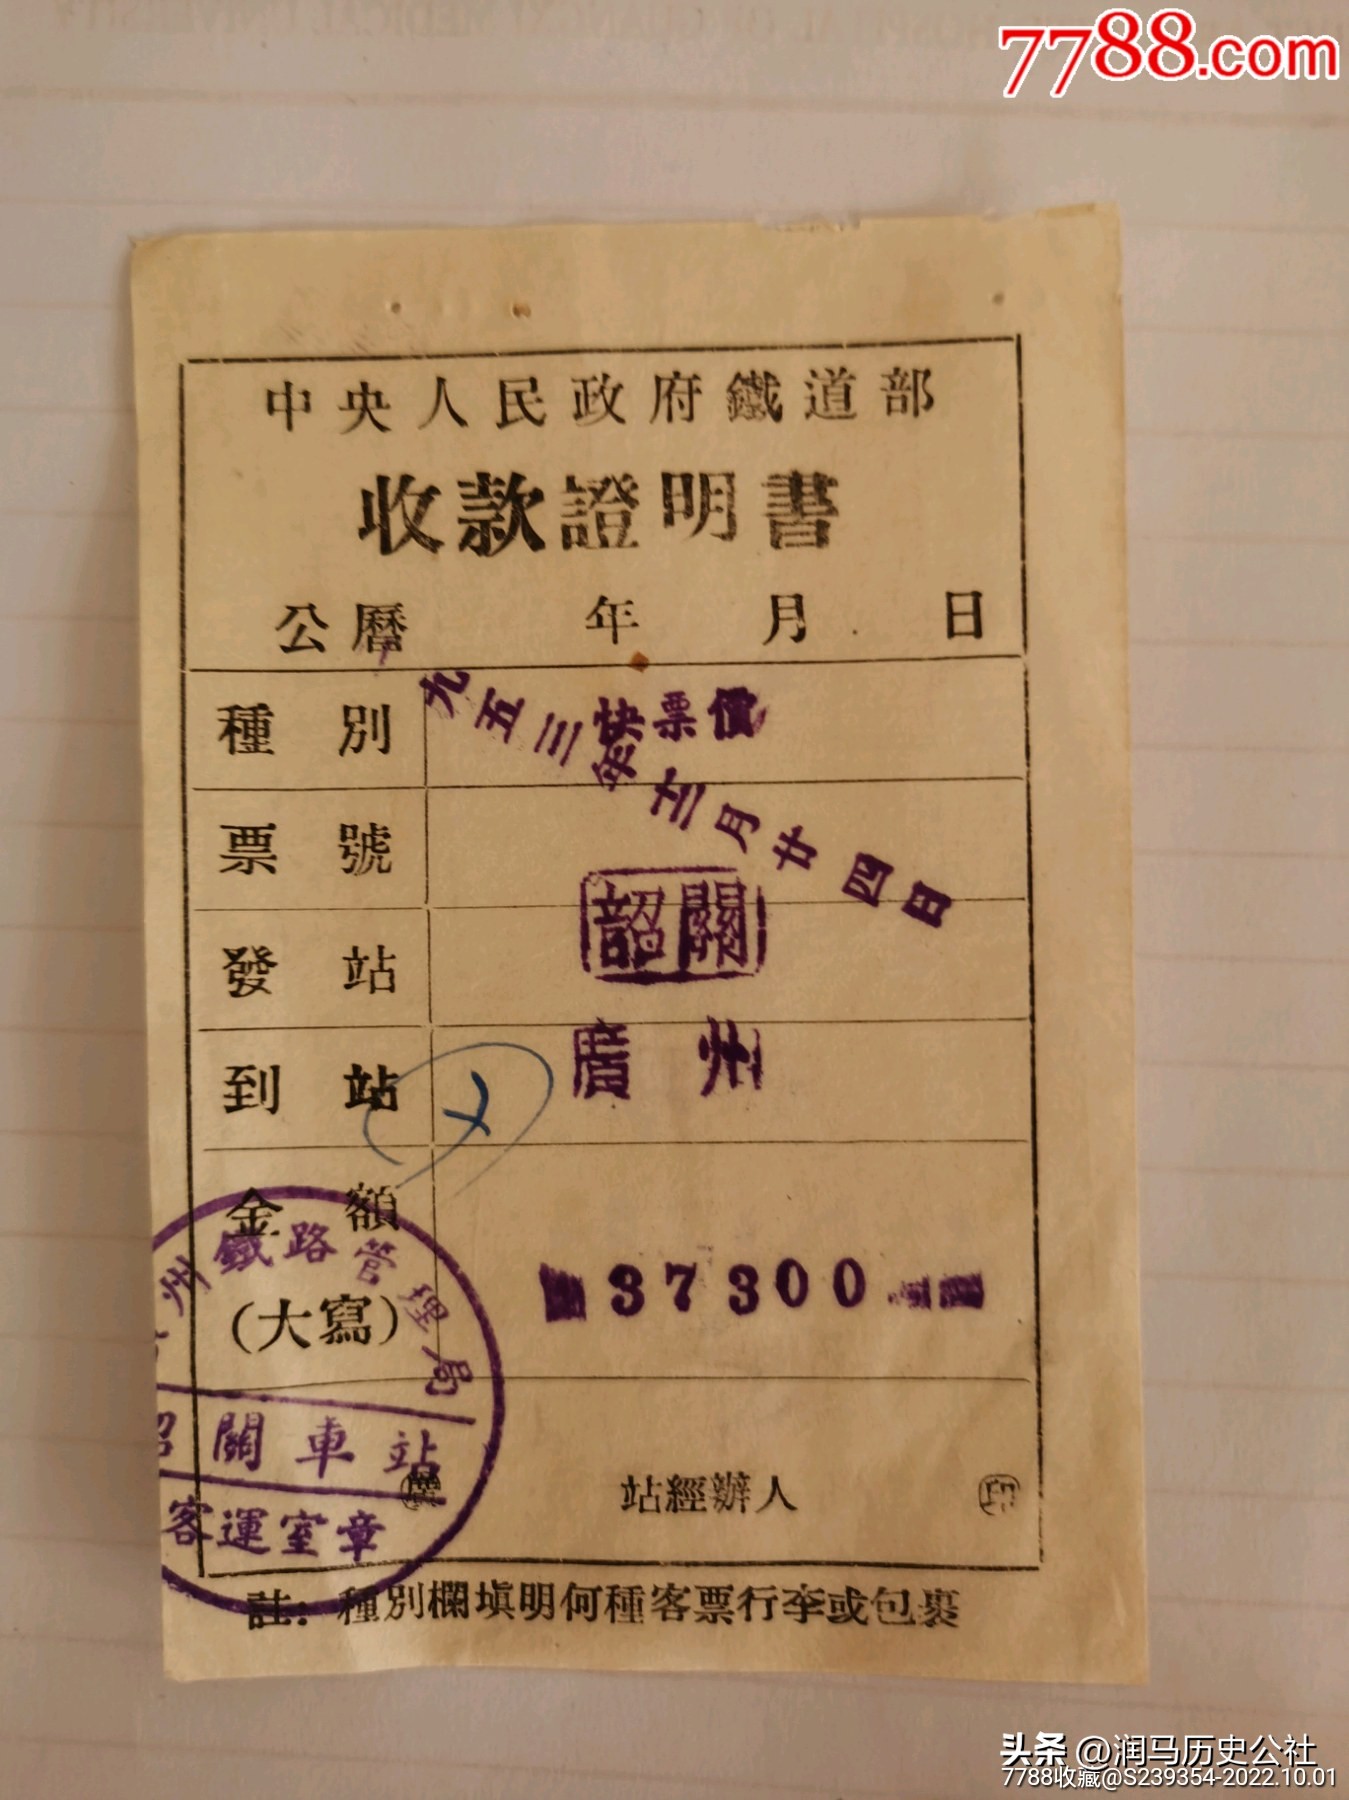 7788.com
中央人民政府鐵道部
收款證明書
公曆 年 月 日
一九五三年十二月廿四日
種別 快票價
票號
發站 韶關
到站 廣州
金額
(大寫)
37300
州鐵路管理局
韶關車站
客運室章
站經辦人 印
註：種別欄填明何種客票行李或包裹
头条 @润马历史公社
7788收藏@S239354-2022.10.01